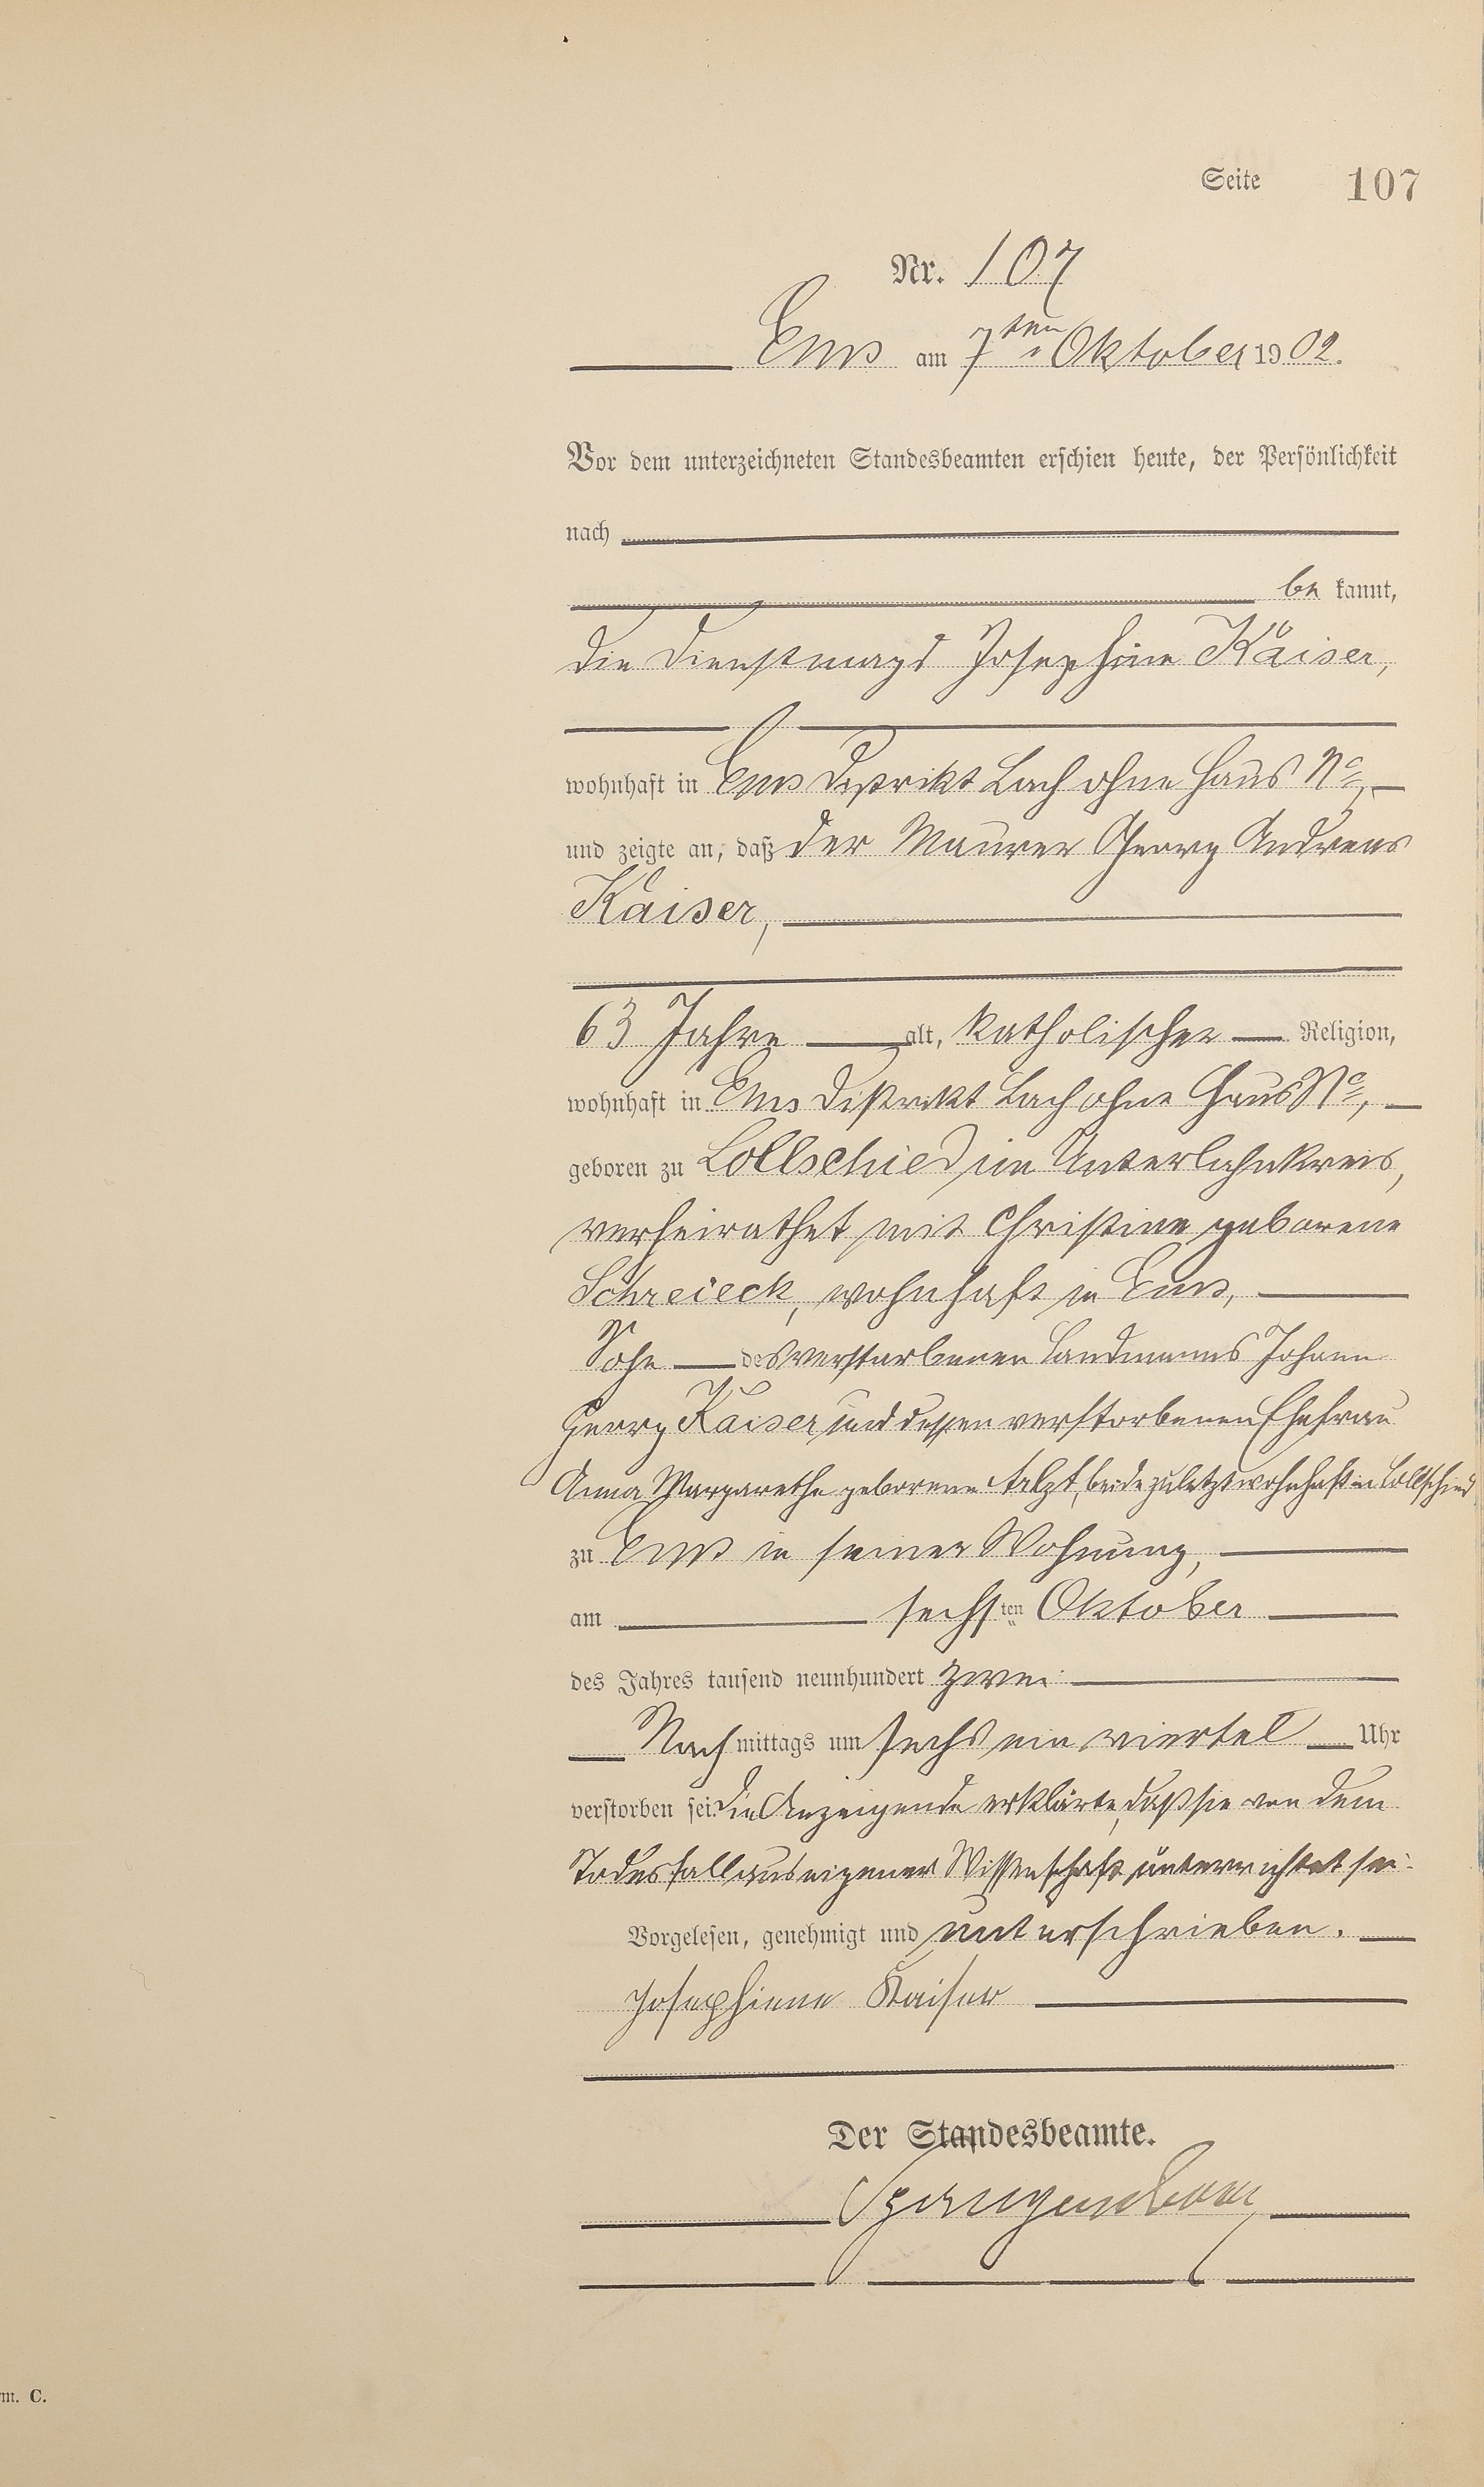 Seite 107
Nr. 107
Ems am 7ten Oktober 1902.
Vor dem unterzeichneten Standesbeamten erschien heute, der Persönlichkeit
nach
be kannt,
die Dienstmagd Josephine Kaiser,
wohnhaft in Ems Distrikt Lach ohne Haus No,
und zeigte an, daß der Maurer Georg Andreas
Kaiser,
63 Jahre alt, katholischer Religion,
wohnhaft in Ems Distrikt Lach ohne Haus No,
geboren zu Lollschied im Unterlahnkreis,
verheirathet mit Christine geborene
Schreieck, wohnhaft in Ems,
Sohn des verstorbenen Landmanns Johann
Georg Kaiser und dessen verstorbenen Ehefrau
Anna Margarethe geborene beide zuletzt wohnhaft in Lollschied
zu Ems in seiner Wohnung,
am sechsten Oktober
des Jahres tausend neunhundert zwei
Nach mittags um sechs ein viertel Uhr
verstorben sei. Die Anzeigende erklärte, daß sie von dem
Todesfall aus eigener Wissenschaft unterrichtet sei.
Vorgelesen, genehmigt und unterschrieben.
Josephiene Kaiser
Der Standesbeamte.
Spangenberg
m. C.